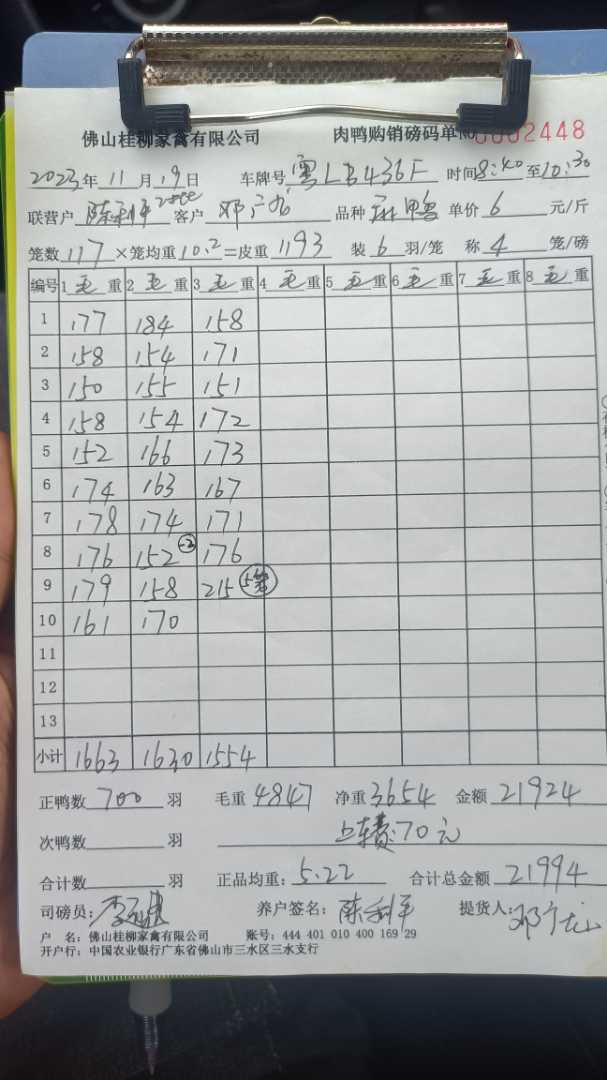 佛山桂柳家禽有限公司 肉鸭购销磅码单No 0002448
2023年 11 月 19 日 车牌号 粤LB436F 时间 8:40 至 10:30
联营户 陈利平 客户 邓广龙 品种 麻鸭 单价 6 元/斤
笼数 117 ×笼均重 10.2 =皮重 1193 装 6 羽/笼 称 4 笼/磅
编号 1 毛 重 2 毛 重 3 毛 重 4 毛 重 5 毛 重 6 毛 重 7 毛 重 8 毛 重
1 177 184 158
2 158 154 171
3 150 155 151
4 158 154 172
5 152 166 173
6 174 163 167
7 178 174 171
8 176 152 -2 176
9 179 158 215 5笼
10 161 170
11
12
13
小计 1663 1630 1554
正鸭数 700 羽 毛重 4847 净重 3654 金额 21924
次鸭数 羽 上车费:70元
合计数 羽 正品均重: 5.22 合计总金额 21994
司磅员: 养户签名: 陈利平 提货人: 邓广龙
户 名: 佛山桂柳家禽有限公司 账号: 444 401 010 400 169 29
开户行: 中国农业银行广东省佛山市三水区三水支行